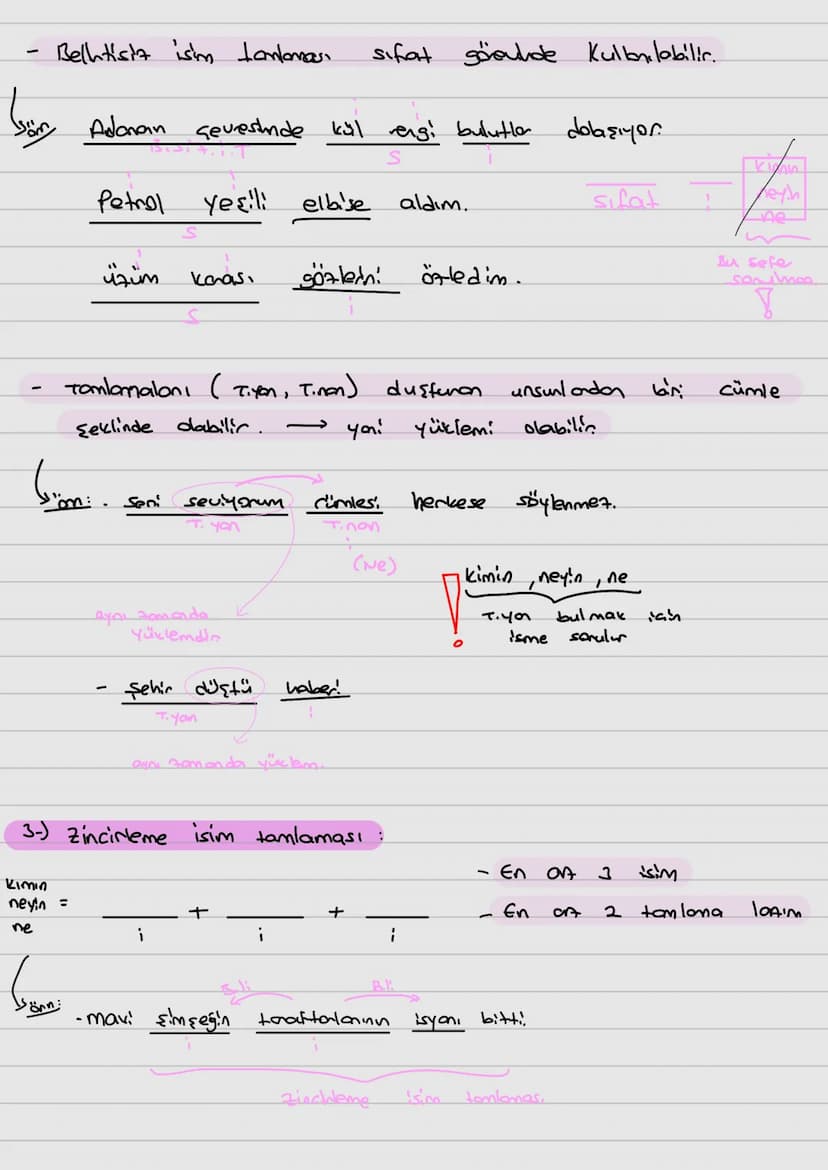 - Belirtisiz isim tamlaması sıfat görevinde kullanılabilir.
örn Adanan çevresinde kül rengi bulutlar dolaşıyor.
S i
Petrol yeşili elbise aldım.
S
sıfat i
kimin
neyin
ne
Bu sefer
sorulmaz
!
üzüm karası gözlerini özledim.
S i
- Tamlamaları (T.yan, T.nan) duşturan unsurlardan biri cümle
şeklinde olabilir. → yani yüklemi olabilir.
örn: . seni seviyorum cümlesi herkese söylenmez.
T. yan T.nan
(Ne)
! kimin, neyin, ne
T.yan bulmak için
isme sorulur
aynı zamanda
yüklemdir
- şehir düştü haberi
T.yan i
aynı zamanda yüklem.
3-) Zincirleme isim tamlaması :
- En az 3 isim
kimin
neyin =
ne
___ + ___ + ___
- En az 2 tamlama lazım
i i i
örn:
B.li B.li
- mavi şimşeğin taraftarlarının isyanı bitti.
i i
zincirleme isim tamlaması.